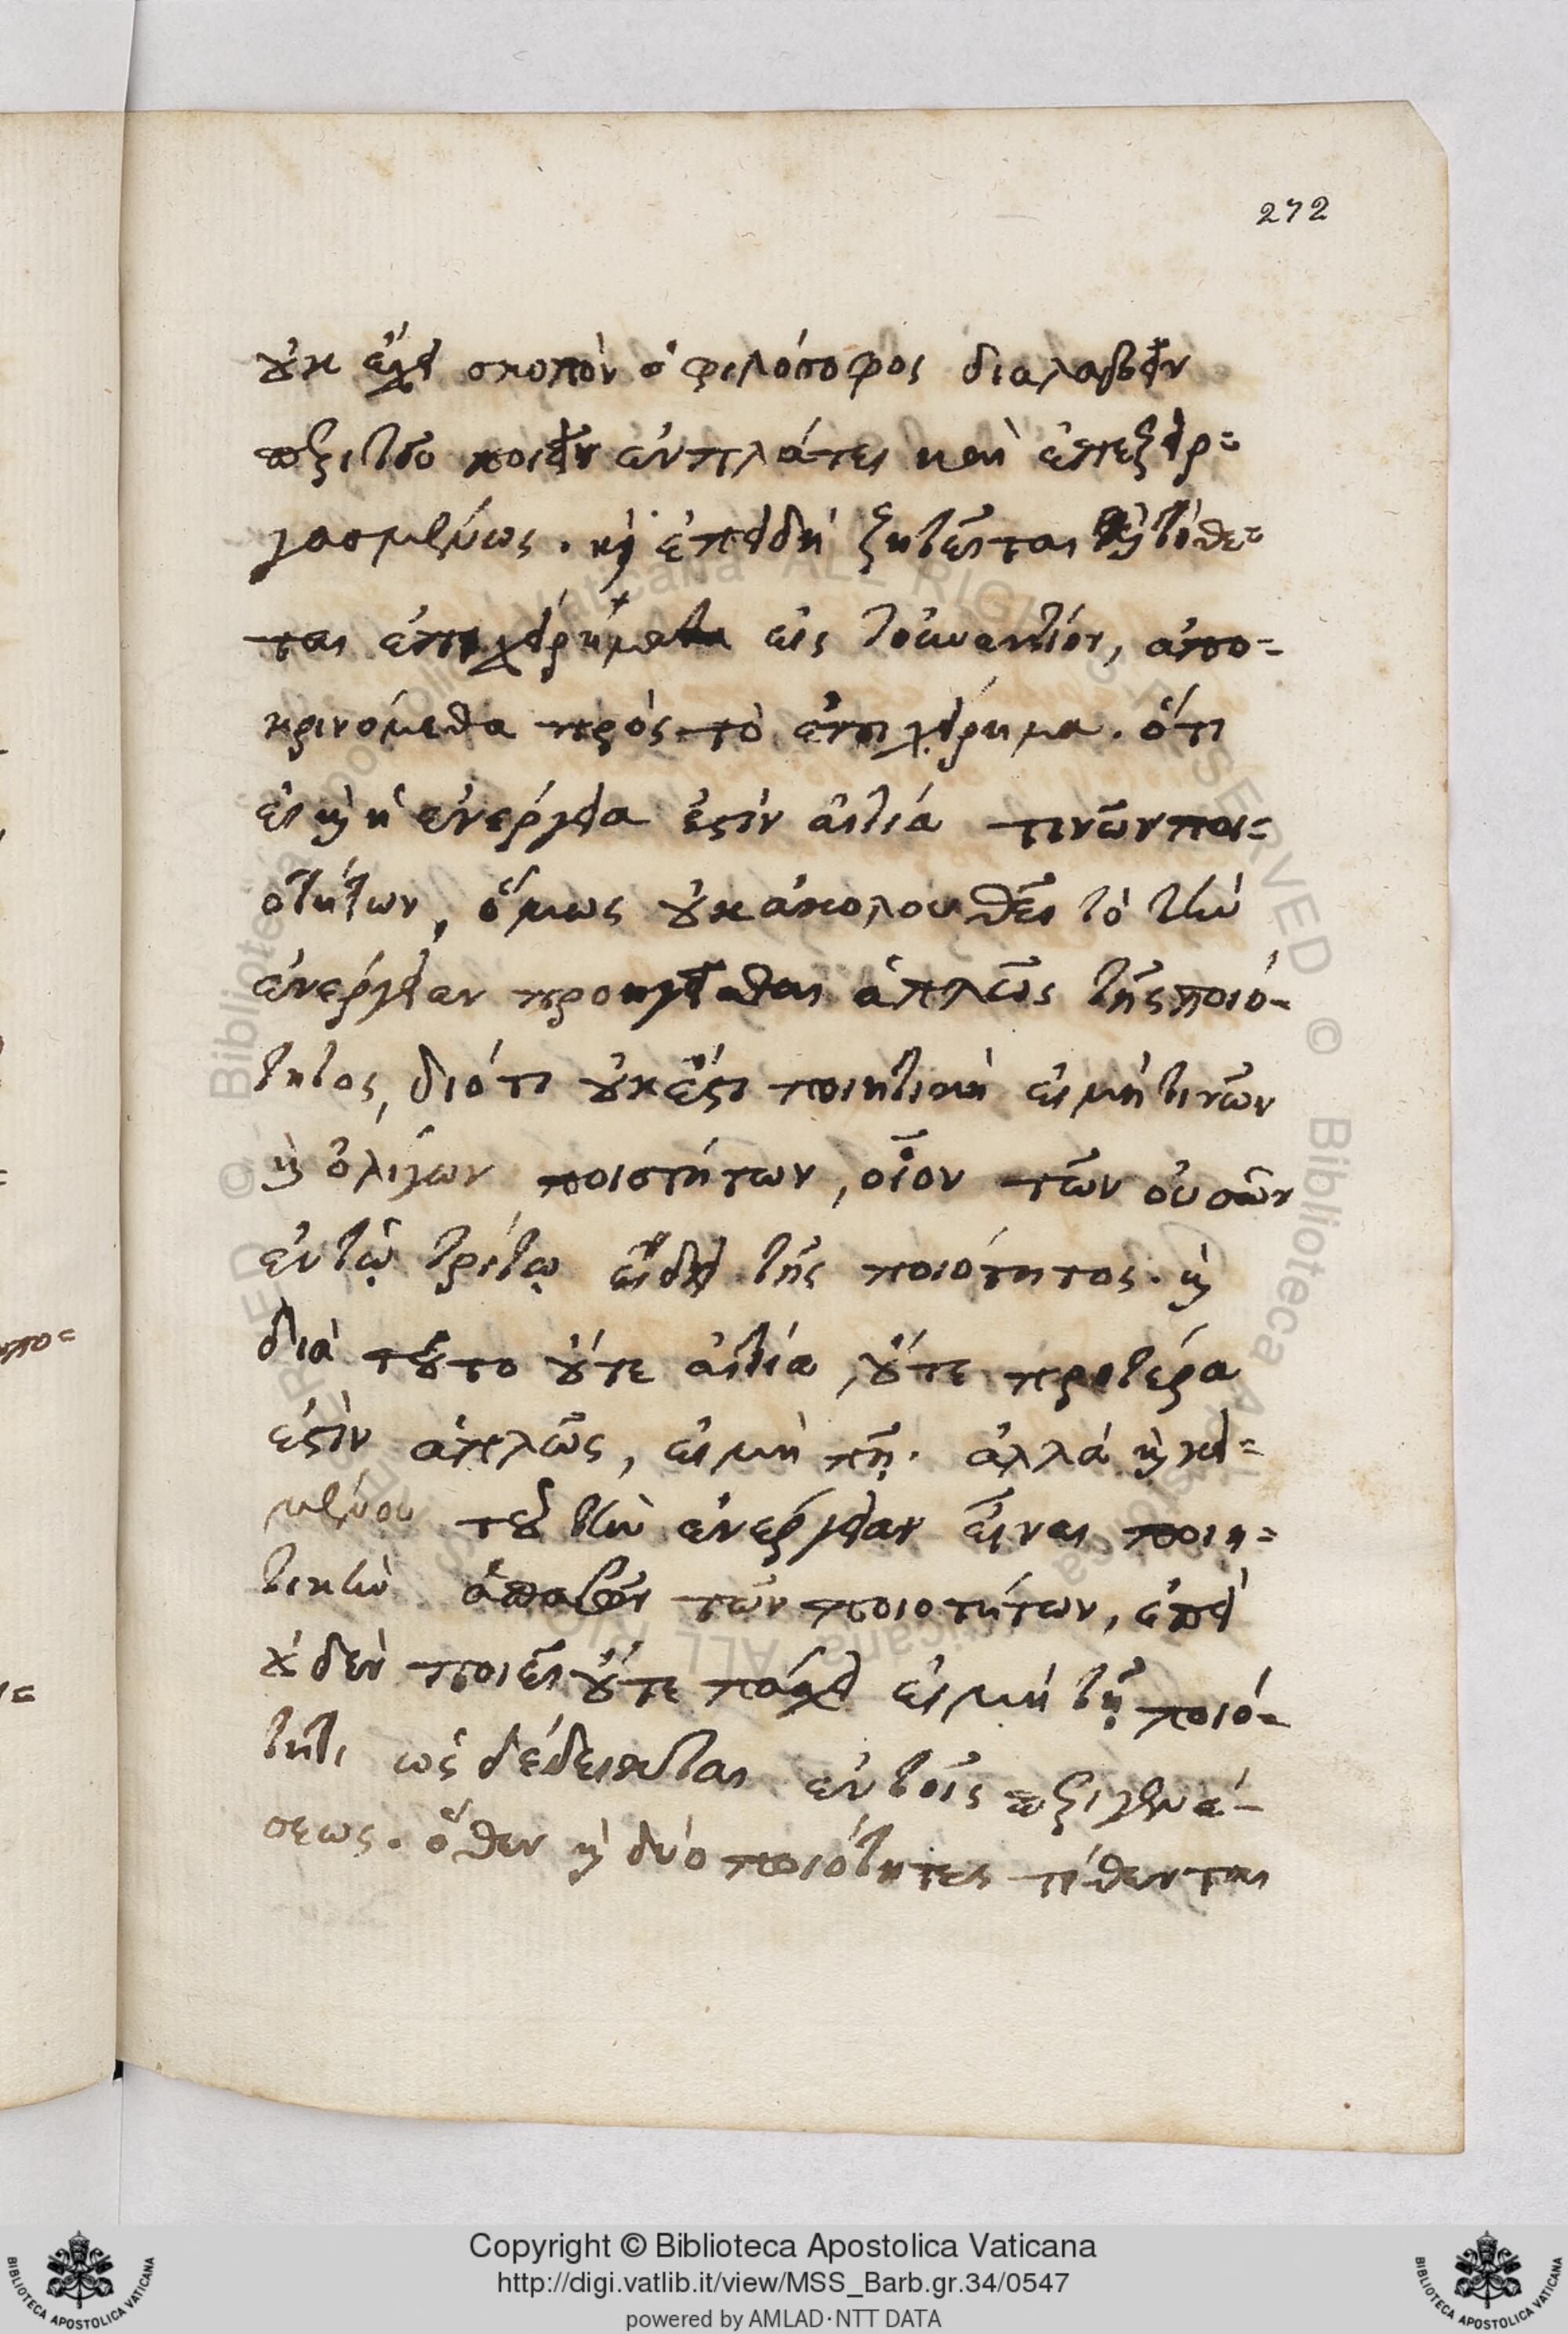 272
οὐκ ἔχει σκοπὸν ὁ φιλόσοφος διαλαβεῖν
περὶ τοῦ ποιεῖν ἐν πλάτει καὶ ἐπεξειρ=
γασμένως. καὶ ἐπειδὴ ζητεῖται καὶ τίθε=
ται ἐπιχείρημα εἰς τοὐναντίον, ἀπο=
κρινόμεθα πρὸς τὸ ἐπιχείρημα. ὅτι
εἰ καὶ ἡ ἐνέργεια ἐστὶν αἰτία τινῶν ποι=
οτήτων, ὅμως οὐκ ἀκολουθεῖ τὸ τὴν
ἐνέργειαν προηγεῖσθαι ἁπλῶς τῆς ποιό=
τητος, διότι οὐκ ἔστι ποιητικὴ εἰμὴ τινῶν
καὶ ὀλίγων ποιοτήτων, οἷον τῶν οὐσῶν
ἐν τῷ τρίτῳ εἴδει τῆς ποιότητος. καὶ
διὰ τοῦτο οὔτε αἰτία, οὔτε προτέρα
ἐστὶν ἁπλῶς, εἰμὴ πῆ. ἀλλὰ καὶ κει=
μένου τοῦ τὴν ἐνέργειαν εἶναι ποιη=
τικὴν ἁπασῶν τῶν ποιοτήτων, ἐπεὶ
οὐδὲν ποιεῖ οὔτε πάσχει εἰμὴ τῇ ποιό=
τητι ὡς δέδεικται ἐν τοῖς περὶ γενέ=
σεως. ὅθεν καὶ δύο ποιότητες τίθενται
Copyright © Biblioteca Apostolica Vaticana
http://digi.vatlib.it/view/MSS_Barb.gr.34/0547
powered by AMLAD·NTT DATA